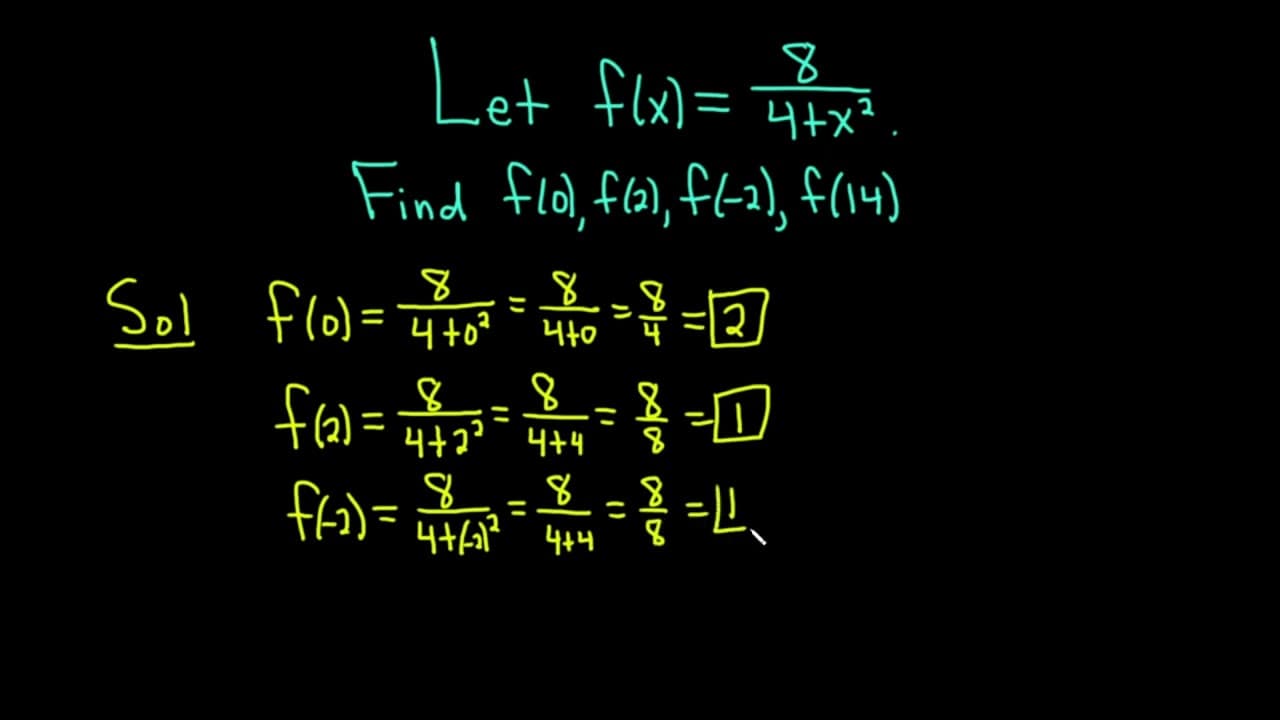 Let f(x) = 8/(4+x²).
Find f(0), f(2), f(-2), f(14)
Sol f(0) = 8/(4+0²) = 8/(4+0) = 8/4 = 2
f(2) = 8/(4+2²) = 8/(4+4) = 8/8 = 1
f(-2) = 8/(4+(-2)²) = 8/(4+4) = 8/8 = 1